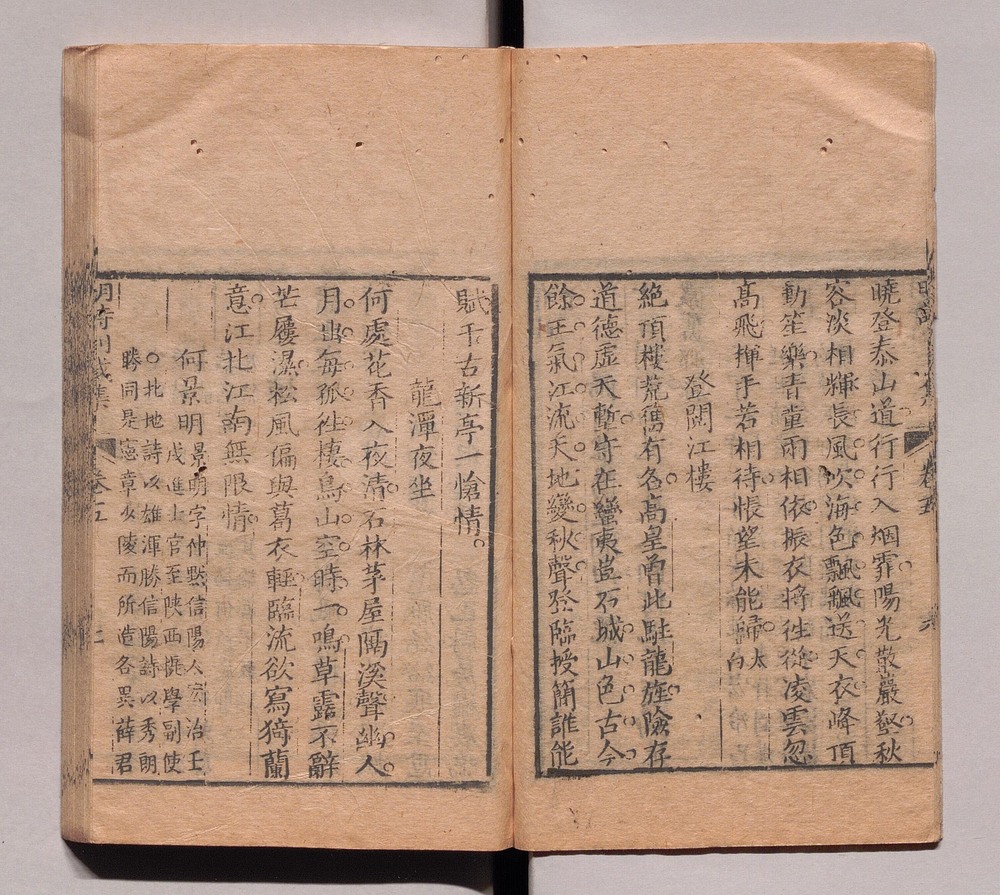 曉登泰山道行行入烟霏陽光散巖壑秋
容淡相輝長風吹海色飄飄送天衣峰頂
動笙樂青童兩相依振衣將徃從凌雲忽
高飛揮手若相待悵望未能歸太
白
登閱江樓
絶頂樓荒舊有名高皇曾此駐龍旌險存
道德虛天塹守在蠻夷豈石城山色古今
餘王氣江流天地變秋聲登臨授簡誰能
賦千古新亭一愴情
龍潭夜坐
何處花香入夜清石林茅屋隔溪聲幽人
月出每孤徃棲鳥山空時一鳴草露不辭
芒屨濕松風偏與葛衣輕臨流欲寫猗蘭
意江北江南無限情
何景明景明字仲默信陽人宏治壬
戌進士官至陜西提學副使
○北地詩以雄渾勝信陽詩以秀朗
勝同是憲章少陵而所造各異薛君
明詩別裁集 卷五